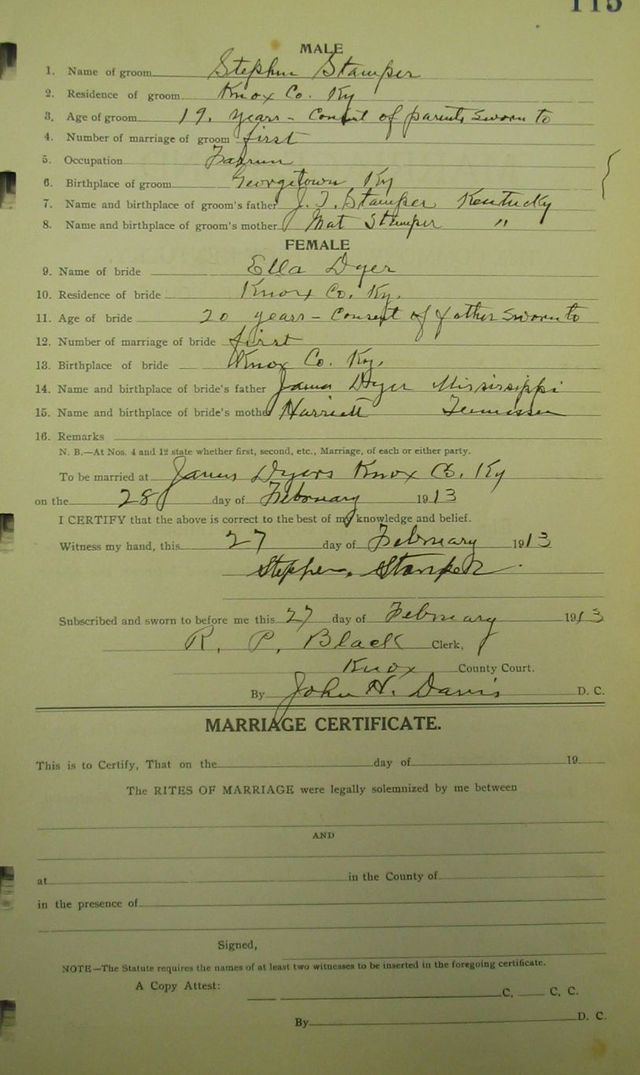 115
MALE
1. Name of groom Stephen Stamper
2. Residence of groom Knox Co. Ky
3. Age of groom 19. years - Consent of parents sworn to
4. Number of marriage of groom first
5. Occupation
6. Birthplace of groom Georgetown Ky
7. Name and birthplace of groom's father J. T. Stamper Kentucky
8. Name and birthplace of groom's mother Mat Stamper "
FEMALE
9. Name of bride Ella Dyer
10. Residence of bride Knox Co. Ky.
11. Age of bride 20 years - Consent of father sworn to
12. Number of marriage of bride first
13. Birthplace of bride Knox Co. Ky.
14. Name and birthplace of bride's father James Dyer Mississippi
15. Name and birthplace of bride's mothe Harriett Tennessee
16. Remarks
N. B.—At Nos. 4 and 12 state whether first, second, etc., Marriage, of each or either party.
To be married at James Dyers Knox Co. Ky
on the 28 day of February 1913
I CERTIFY that the above is correct to the best of my knowledge and belief.
Witness my hand, this 27 day of February 1913
Stephen Stamper
Subscribed and sworn to before me this 27 day of February 1913
R. P. Black Clerk,
Knox County Court.
By John H. Davis D. C.
MARRIAGE CERTIFICATE.
This is to Certify, That on the day of 19
The RITES OF MARRIAGE were legally solemnized by me between
AND
at in the County of
in the presence of
Signed,
NOTE—The Statute requires the names of at least two witnesses to be inserted in the foregoing certificate.
A Copy Attest: C. C. C.
By D. C.